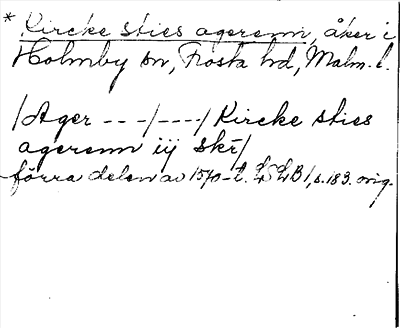 * Kircke sties agerenn, åker i
Holmby sn, Frosta hd, Malm. l.
/Ager - - -/- - - -/ Kircke sties
agerenn iij skr/
förra delen av 1570-t. LSLB 1, s. 183. orig.